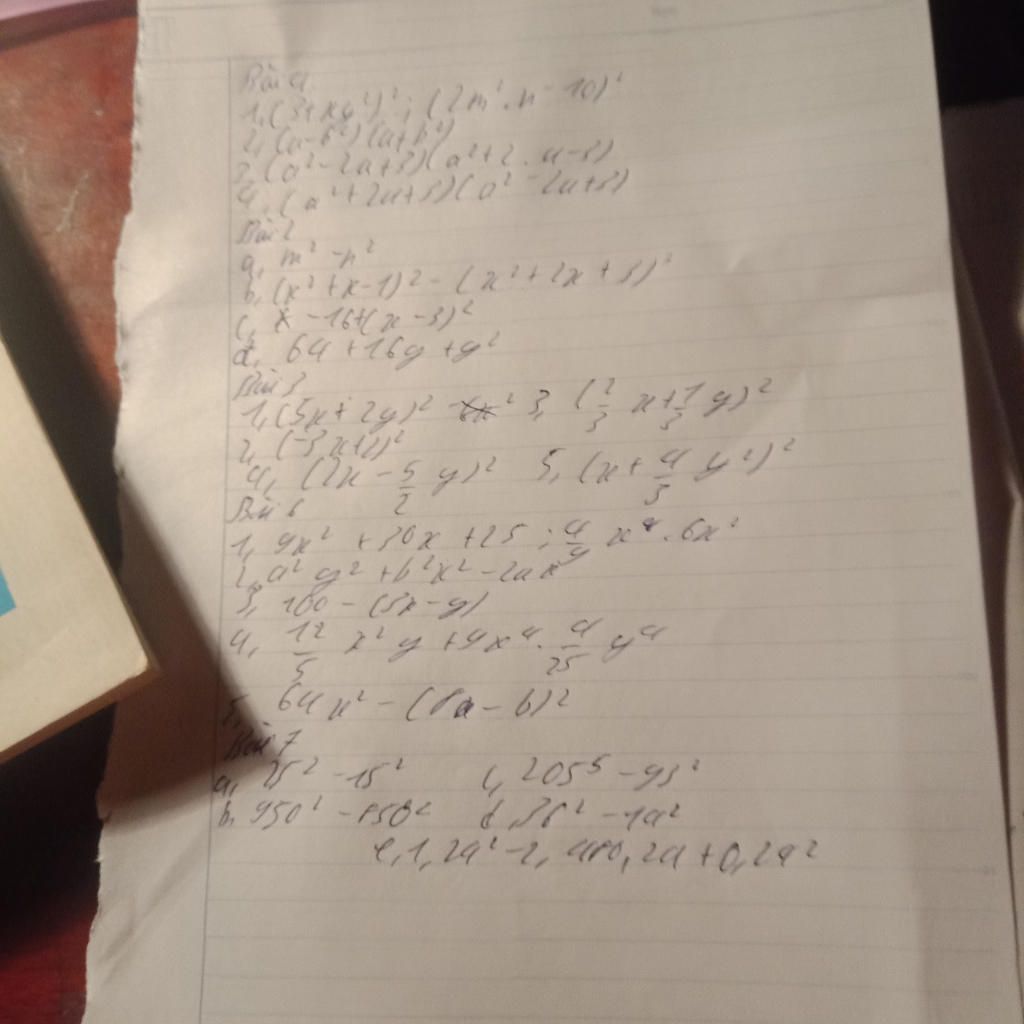 Bài 1
1, (3+xy²)² ; (2m².n - 10)²
2, (a-b²)(a+b²)
3, (a²-2a+3)(a²+2.a-3)
4, (a²+2a+3)(a²-2a+3)
Bài 2
a, m² - n²
b, (x²+x-1)² - (x²+2x+3)²
c, - 16+(x-3)²
d, 64+16y+y²
Bài 3
1, (5x+2y)² 3, (2/3 x+1/3 y)²
2, (-3x+2)²
4, (2x - 5/2 y)² 5, (x + 4/3 y²)²
Bài 6
1, 9x² + 30x + 25 ; 4/9 x⁴ . 6x²
2, a²y² + b²x² - 2ax
3, 100 - (3x-y)
4, 12/5 x²y + 9x⁴ . 4/25 y⁴
5, 64x² - (8a-b)²
Bài 7
a, 25² - 15² c, 205⁵ - 95²
b, 950² - 850² d, 36² - 14²
e, 1,24² - 2, 480,24 + 0,24²